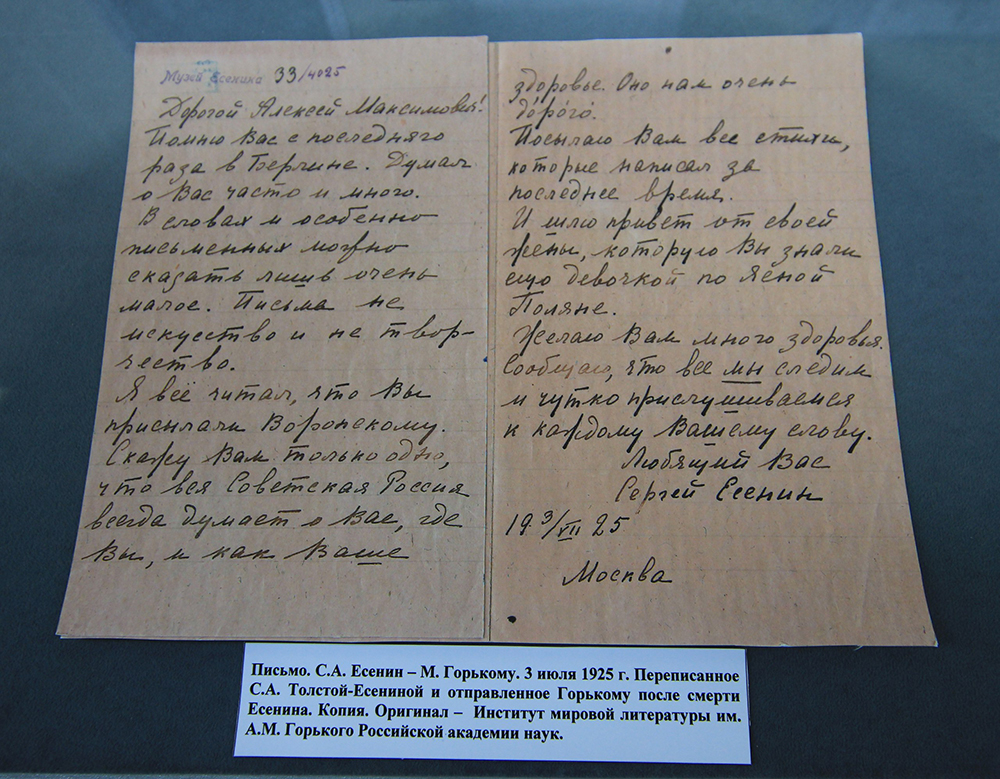 Музей Есенина 33/4025
Дорогой Алексей Максимович!
Помню Вас с последняго
раза в Берлине. Думал
о Вас часто и много.
В словах и особенно
письменных можно
сказать лишь очень
малое. Письма не
искусство и не твор-
чество.
Я всё читал, что Вы
присылали Воронскому.
Скажу Вам только одно,
что вся Советская Россия
всегда думает о Вас, где
Вы, и как Ваше
здоровье. Оно нам очень
дорого.
Посылаю Вам все стихи,
которые написал за
последнее время.
И шлю привет от своей
жены, которую Вы знали
ещо девочкой по Ясной
Поляне.
Желаю Вам много здоровья.
Сообщаю, что все мы следим
и чутко прислушиваемся
к каждому Вашему слову.
Любящий Вас
Сергей Есенин
19 3/VII 25
Москва
Письмо. С.А. Есенин – М. Горькому. 3 июля 1925 г. Переписанное
С.А. Толстой-Есениной и отправленное Горькому после смерти
Есенина. Копия. Оригинал – Институт мировой литературы им.
А.М. Горького Российской академии наук.